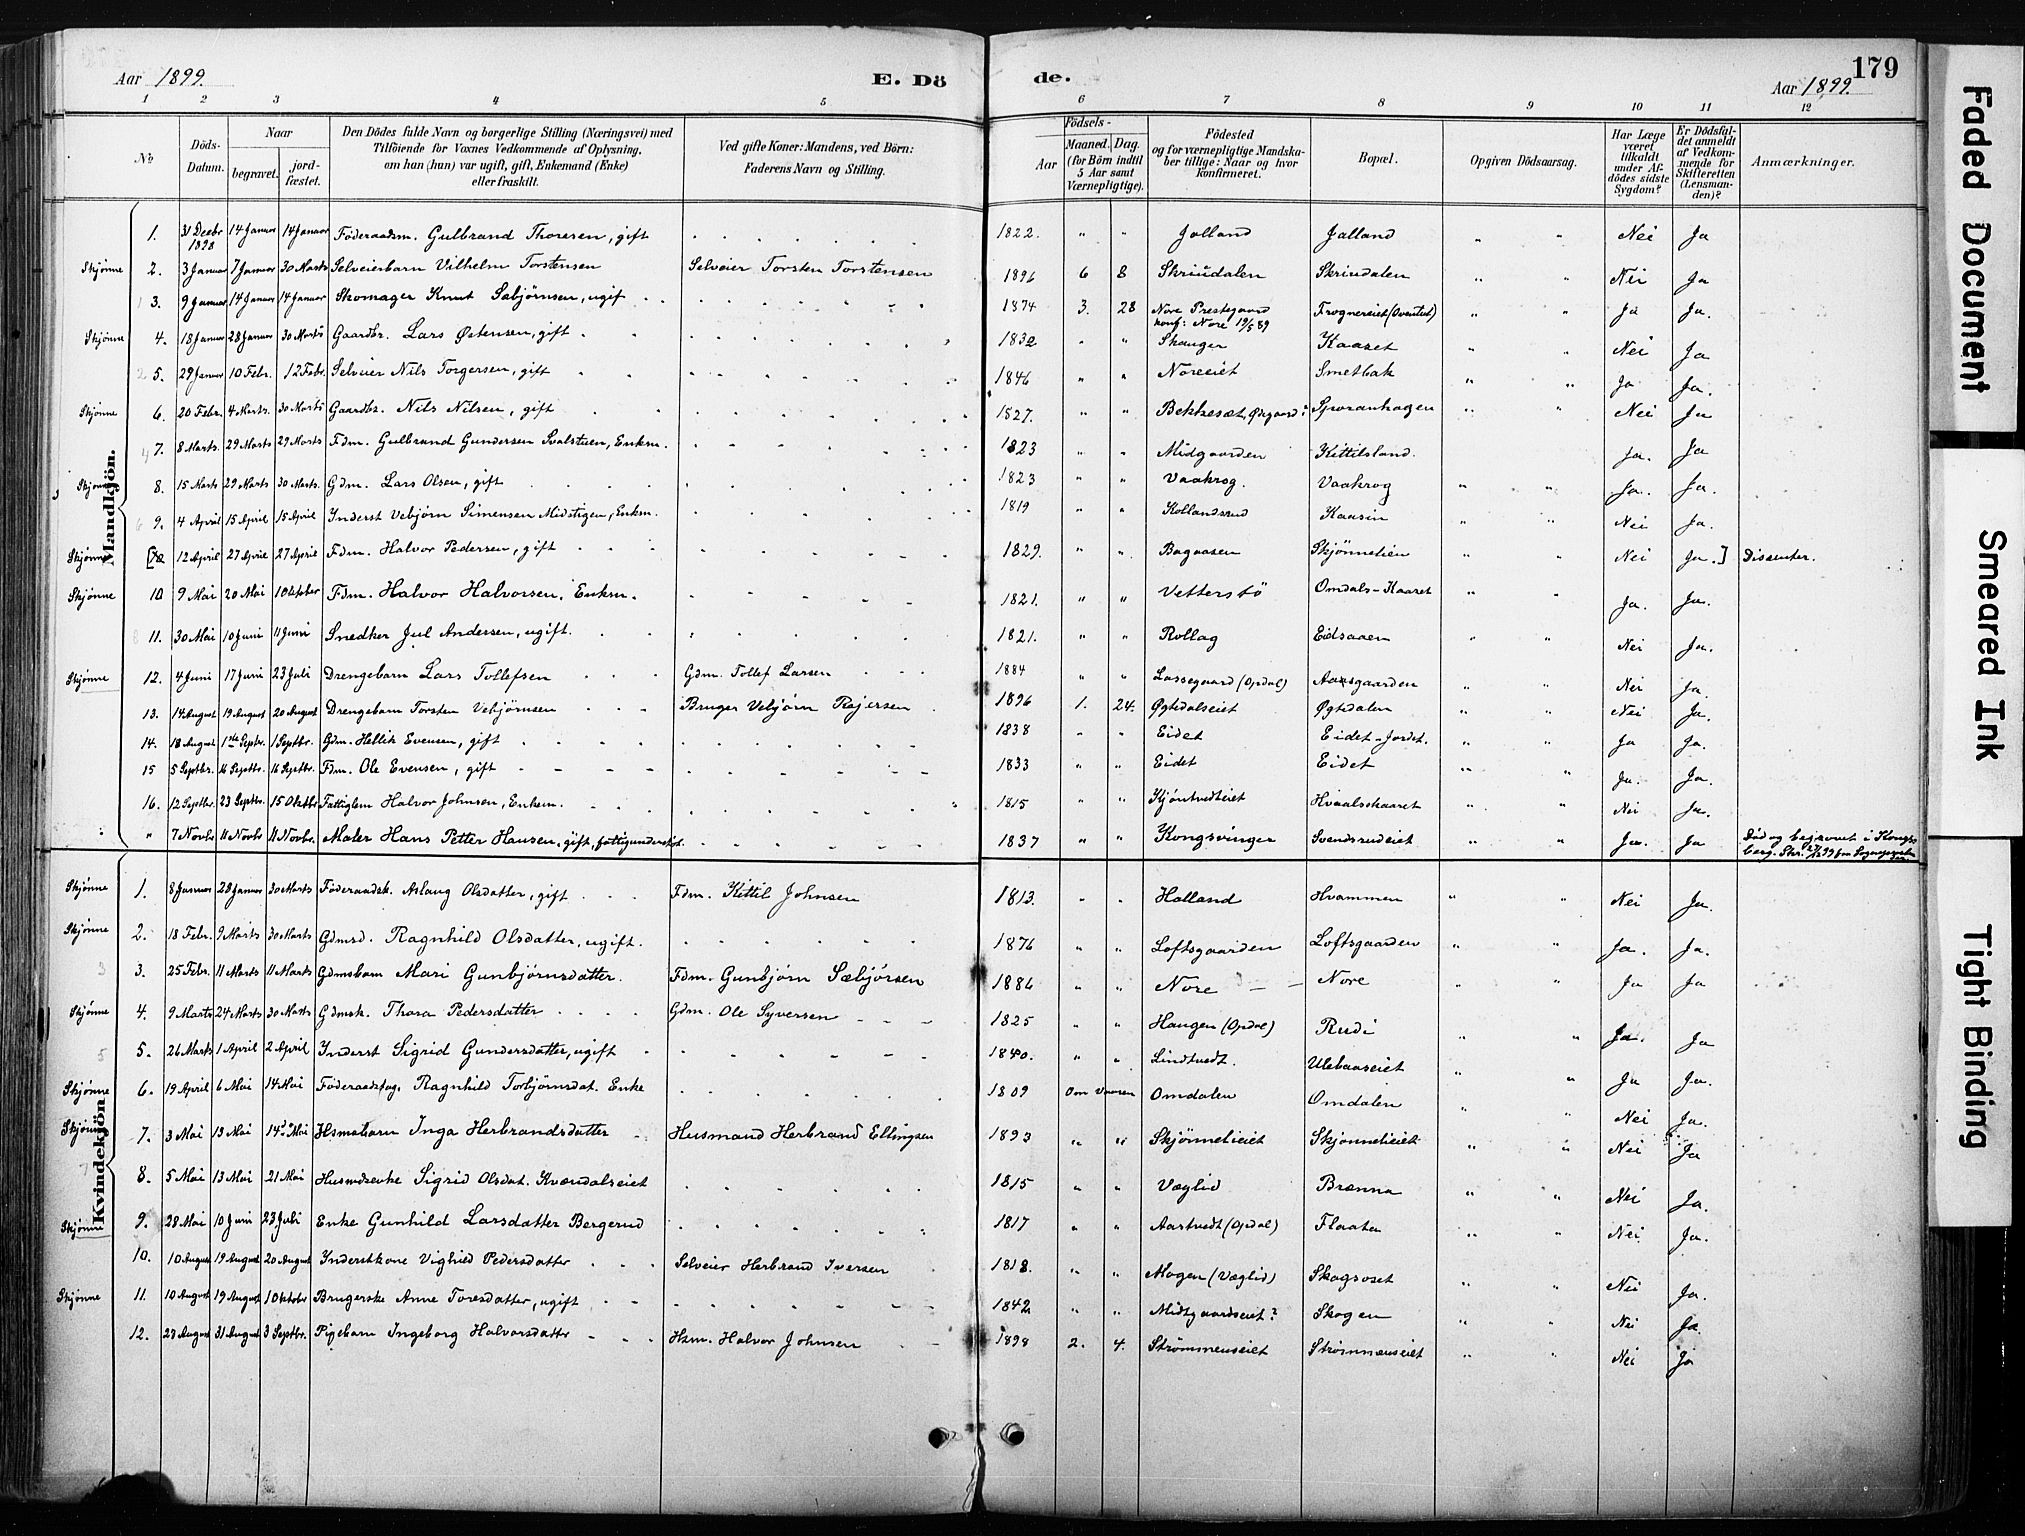 Aar 1899.
E. Dö
de.
179
Aar 1899.
1 2 3 4 5 6 7 8 9 10 11 12
No
Döds-Datum.
Naar
begravet.
jord-fæstet.
Den Dödes fulde Navn og borgerlige Stilling (Næringsvei) med
Tilföiende for Voxnes Vedkommende af Oplysning,
om han (hun) var ugift, gift, Enkemand (Enke)
eller fraskilt.
Ved gifte Koner: Mandens, ved Börn:
Faderens Navn og Stilling.
Födsels-
Aar
Maaned. Dag.
(for Börn indtil
5 Aar samt
Værnepligtige).
Födested
og for værnepligtige Mandska-
ber tillige: Naar og hvor
konfirmeret.
Bopæl.
Opgiven Dödsaarsag.
Har Læge
været
tilkaldt
under Af-
dödes sidste
Sygdom?
Er Dödsfal-
det anmeldt
af Vedkom-
mende for
Skifteretten
(Lensman-
den)?
Anmærkninger.
Mandkjön.
1. 31 Decbr 1898 14 Januar 14 Januar Föderaadsm. Gulbrand Thoresen, gift 1822. " " Jalland Jalland " " Nei Ja
Skjönne 2. 3 Januar 7 Januar 30 Marts Selveierbarn Vilhelm Torstensen Selveier Torsten Torstensen 1896 6 8 Skriudalen Skriudalen " " Nei Ja
3. 9 Januar 14 Januar 14 Januar Skomager Knut Sebjørnsen, ugif 1874 3. 28 Nore Prestegaard konf: Nore 19/5 89 Frognereiet " " Ja Ja.
Skjönne 4. 18 Januar 28 Januar 30 Marts Gaardbr. Lars Østensen, gift 1832 " " Skauger Kaaset " " Nei Ja
5. 29 Januar 10 Febr. 12 Febr. Selveier Nils Torgersen, gift 1846 " " Noreeiet Smetbak " " Ja Ja.
Skjönne 6. 20 Febr. 4 Marts. 30 Marts Gaardbr. Nils Nilsen, gift 1827. " " Bekkesæt, Ødegaard? Sporanhagen " " Nei Ja
7. 8 Marts. 29 Marts 29 Marts Fdm. Gulbrand Gundersen Svalstuen, Enkm. 1823 " " Midgaarden Kittilsland. Ja. Ja
Skjönne 8. 15 Marts 29 Marts 30 Marts. Gdm. Lars Olsen, gift 1823 " " Vaakrog. Vaakrog " " Ja. Ja.
9. 4 April 15 April 15 April Inderst Vebjørn Simensen Midstigen, Enkm. 1819 " " Kollandsrud Kaasin " " Nei Ja.
Skjönne 12 April 27 April 27 April Fdm. Halvor Pedersen, gift 1829. " " Bagaasen Skjönnelien " " Nei Ja.] Dissenter.
Skjönne 10 9 Mai 20 Mai 1 Oktober Fdm. Halvor Halvorsen, Enkm. 1821. " " Vetterstö Omdals-Kaaset " " Ja. Ja.
11. 30 Mai 10 Juni 11 Juni Snedker Jul Andersen, ugift. 1821. " " Rollag Eidsaaen " " Nei Ja.
Skjönne 12. 4 Juni 17 Juni 23 Juli Drengebarn Lars Tollefsen Gdm. Tollef Larsen 1884 " " Lassegaard (Opdal) Aasgaarden " " Nei Ja.
13. 14 August 19 August 20 August Drengebarn Torsten Vebjörnsen Bruger Vebjørn Rejersen 1896 1. 24. Øgtedalseiet Øgtedalen " " Nei Ja.
14. 18 August 1ste Septr. 1 Septbr. Gdm. Hellik Evensen, gift 1838 " " Eidet Eidet-Jordet. " " Ja Ja.
15 5 Septbr. 16 Septbr. 16 Septbr. Fdm. Ole Evensen, gift 1833 " " Eidet Eidet " " Ja. Ja.
16. 12 Septbr. 23 Septbr. 15 Oktbr Fattiglem Halvor Johnsen, Enkem. 1815 " " Kjöntvedteiet Hvaalskaaret " " Nei Ja.
" 7 Novbr 11 Novbr 11 Novbr. Maler Hans Petter Hansen, gift, fattigunderstøt. 1837 " " Kongsvinger Svendsrudeiet " " Ja. Ja Död og begravet i Kongsberg.
Kvindekjön.
Skjönne 1. 8 Januar 28 Januar 30 Marts Föderaadsk. Aslaug Olsdatter, gift Fdm. Kittil Johnsen 1813. " " Holland Hvammen " " Nei Ja.
Skjönne 2. 18 Febr. 9 Marts 30 Marts Gdmsd. Ragnhild Olsdatter, ugift. 1876 " " Loftsgaarden Loftsgaarden " " Ja. Ja.
3. 25 Febr. 11 Marts 11 Marts Gdmsbarn Mari Gunbjörnsdatter. Fdm. Gunbjørn Sæbjörsen 1886 " " Nore Nore " " Ja Ja
Skjönne 4. 9 Marts 24 Marts 30 Marts Gdmsk. Thora Pedersdatter Gdm. Ole Syversen 1825 " " Haugen (Opdal) Rudi " " Ja. Ja
5. 26 Marts 1 April 2 April Inderst Sigrid Gundersdatter, ugift 1840. " " Lindtvedt. Ulebaaseiet " " Ja Ja.
Skjönne 6. 19 April 6 Mai 14 Mai Ragnhild Torbjørnsdat. Enke 1809 Om Vaaren Omdalen Omdalen " " Nei Ja.
Skjönne 7. 3 Mai 13 Mai 14de Mai Hsmsbarn Inga Herbrandsdatter Husmand Herbrand Ellingsen 1893 " " Skjönnelieiet Skjonnelieiet " " Nei Ja
8. 5 Mai 13 Mai 21 Mai Husmdsenke Sigrid Olsdat. Kvændalseiet 1815 " " Væglid Brænna " " Nei Ja.
Skjönne 9. 28 Mai 10 Juni 23 Juli Enke Gunhild Larsdatter Bergerud 1817 " " Aastvedt (Opdal) Flaaten " " Nei Ja.
10. 10 August 19 August 20 August Inderstkone Vighild Pedersdatter Selveier Herbrand Iversen 1818. " " Mogen (Væglid) Skogsset " " Nei Ja.
Skjönne 11. 10 August 19 August 1 Oktober Brugerske Anne Toresdatter, ugift 1842 " " Midtgaardseiet? Skogen " " Nei Ja.
12. 23 August 31 August 3 Septbr. Pigebarn Ingeborg Halvorsdatter Hsm. Halvor Johnsen 1898 2. 4. Strömmenseiet Strömmenseiet " " Nei Ja
Faded Document
Smeared Ink
Tight Binding